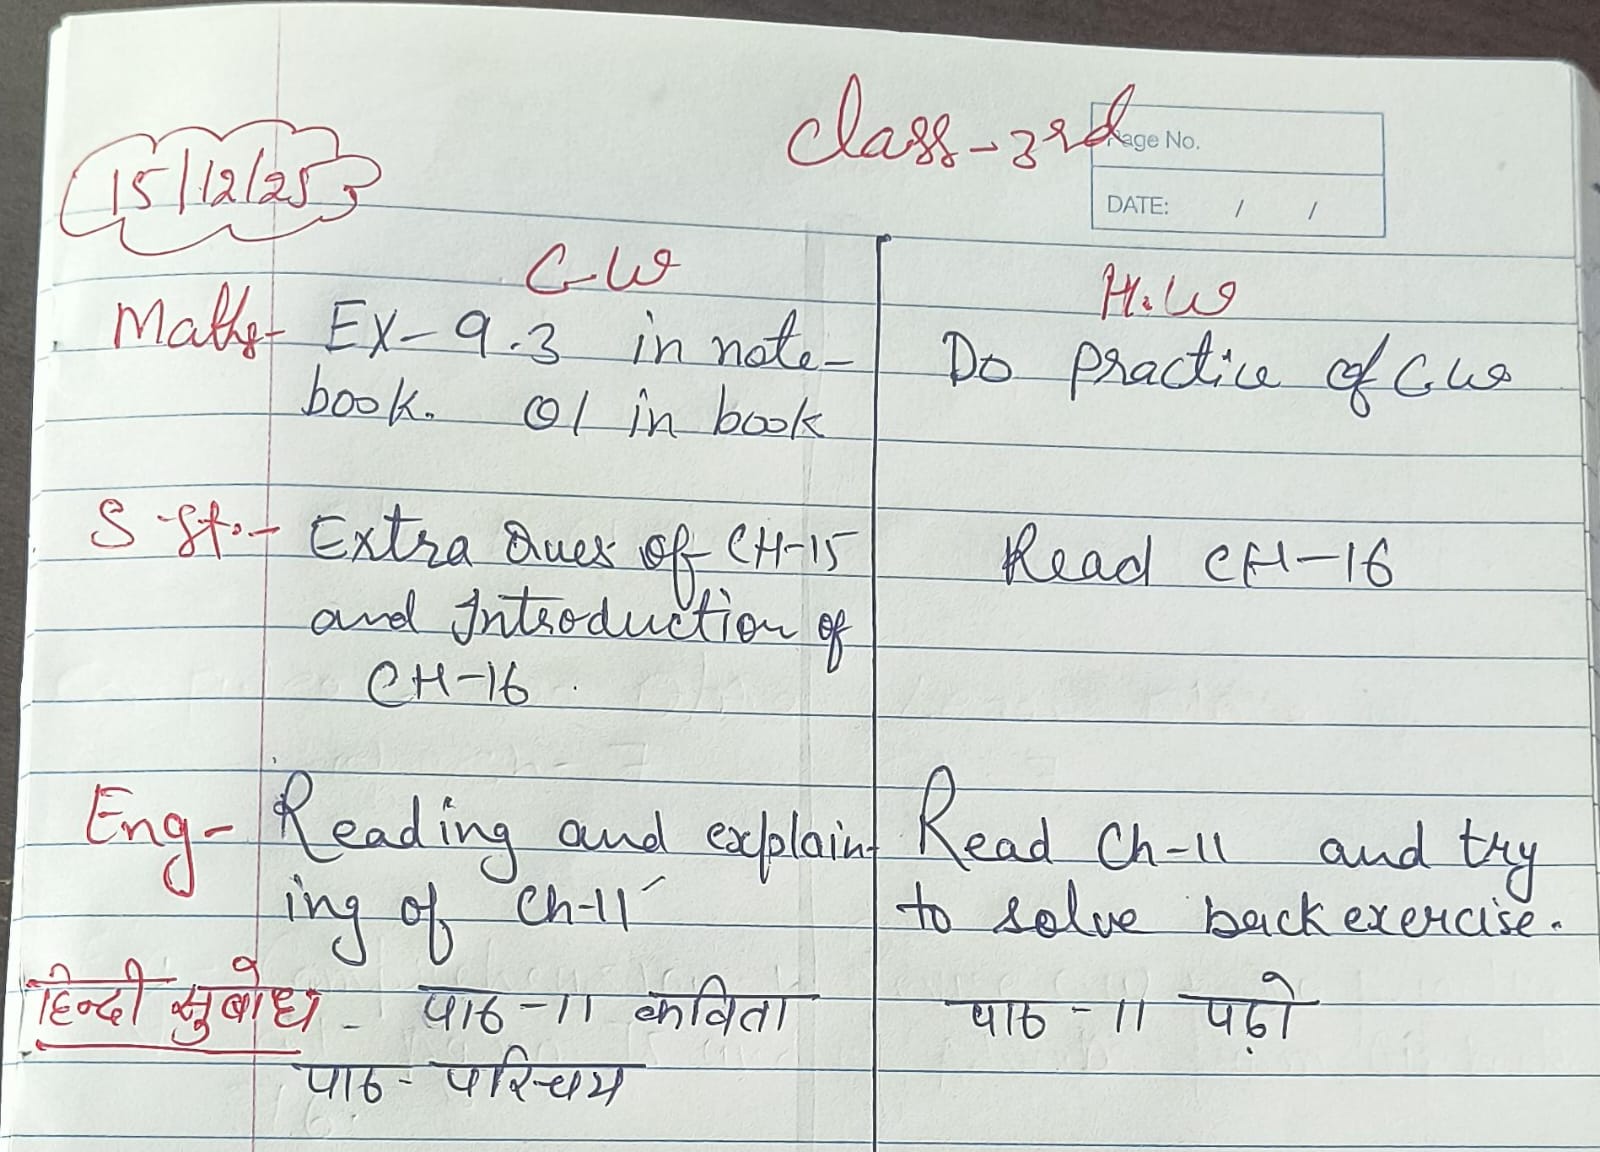 class-3rd
Page No.
15/12/25
DATE: / /
C.W
H.W
Maths- Ex-9.3 in note-
book. Q1 in book
Do practice of C.W
S.St.- Extra Ques of CH-15
and Introduction of
CH-16.
Read CH-16
Eng- Reading and explain-
ing of Ch-11
Read Ch-11 and try
to solve back exercise.
हिन्दी सुबोध - पाठ-11 कविता
पाठ-परिचय
पाठ-11 पढ़ो